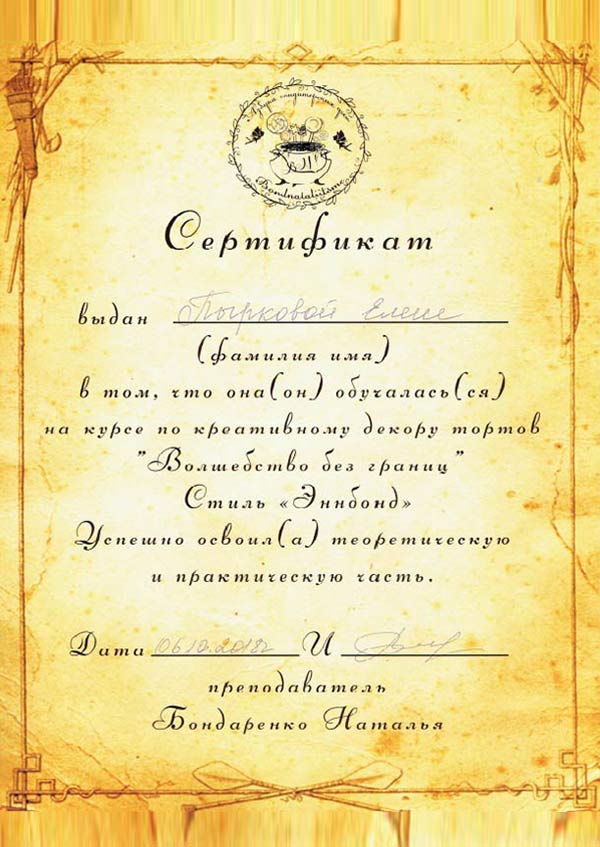 Bondnatalijisme
Сертификат
выдан Пырковой Елене
(фамилия имя)
в том, что она(он) обучалась(ся)
на курсе по креативному декору тортов
"Волшебство без границ"
Стиль «Эннбонд»
Успешно освоил(а) теоретическую
и практическую часть.
Дата 06.10.2018г И
преподаватель
Бондаренко Наталья